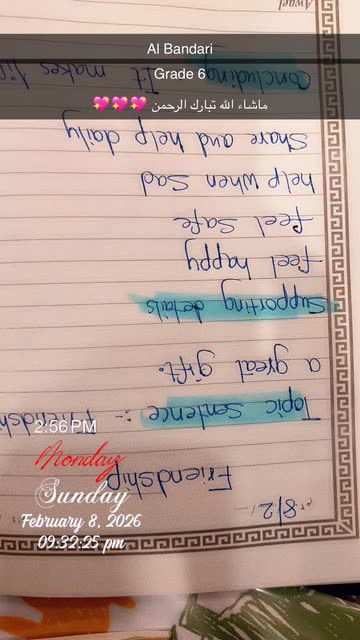 Al Bandari
Grade 6
ماشاء الله تبارك الرحمن 💖💖💖
8/2
Friendship
Topic sentence :- Friendsh
a great gift.
Supporting details
feel happy
feel safe
help when Sad
Share and help daily
Concluding It makes
Awael
2:56 PM
Monday
Sunday
February 8, 2026
09:32:25 pm